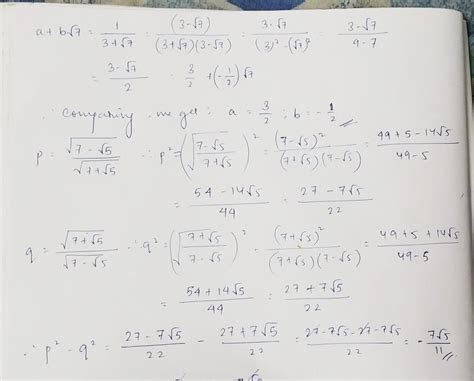 a+b√7 = 1/(3+√7) = (3-√7)/((3+√7)(3-√7)) = (3-√7)/((3)²-(√7)²) = (3-√7)/(9-7)
= (3-√7)/2 = 3/2 + (-1/2)√7
∴ Comparing, we get: a = 3/2 ; b = -1/2
p = √(7-√5)/√(7+√5) ∴ p² = (√((7-√5)/(7+√5)))² = (7-√5)²/((7+√5)(7-√5)) = (49+5-14√5)/(49-5)
= (54-14√5)/44 = (27-7√5)/22
q = √(7+√5)/√(7-√5) ∴ q² = (√((7+√5)/(7-√5)))² = (7+√5)²/((7+√5)(7-√5)) = (49+5+14√5)/(49-5)
= (54+14√5)/44 = (27+7√5)/22
∴ p² - q² = (27-7√5)/22 - (27+7√5)/22 = (27-7√5-27-7√5)/22 = -7√5/11